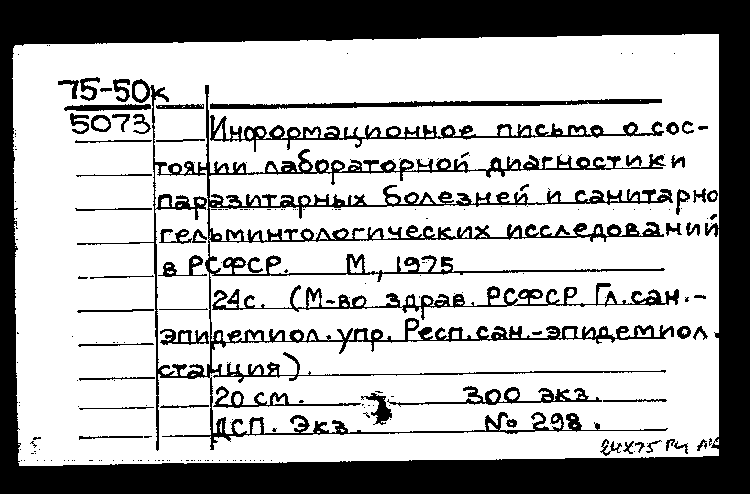 75-50к
5073
Информационное письмо о сос-
тоянии лабораторной диагностики
паразитарных болезней и санитарно
гельминтологических исследований
в РСФСР. М., 1975.
24с. (М-во здрав. РСФСР. Гл.сан.-
эпидемиол.упр. Респ.сан.-эпидемиол.
станция).
20 см. 300 экз.
ДСП. Экз. № 298.